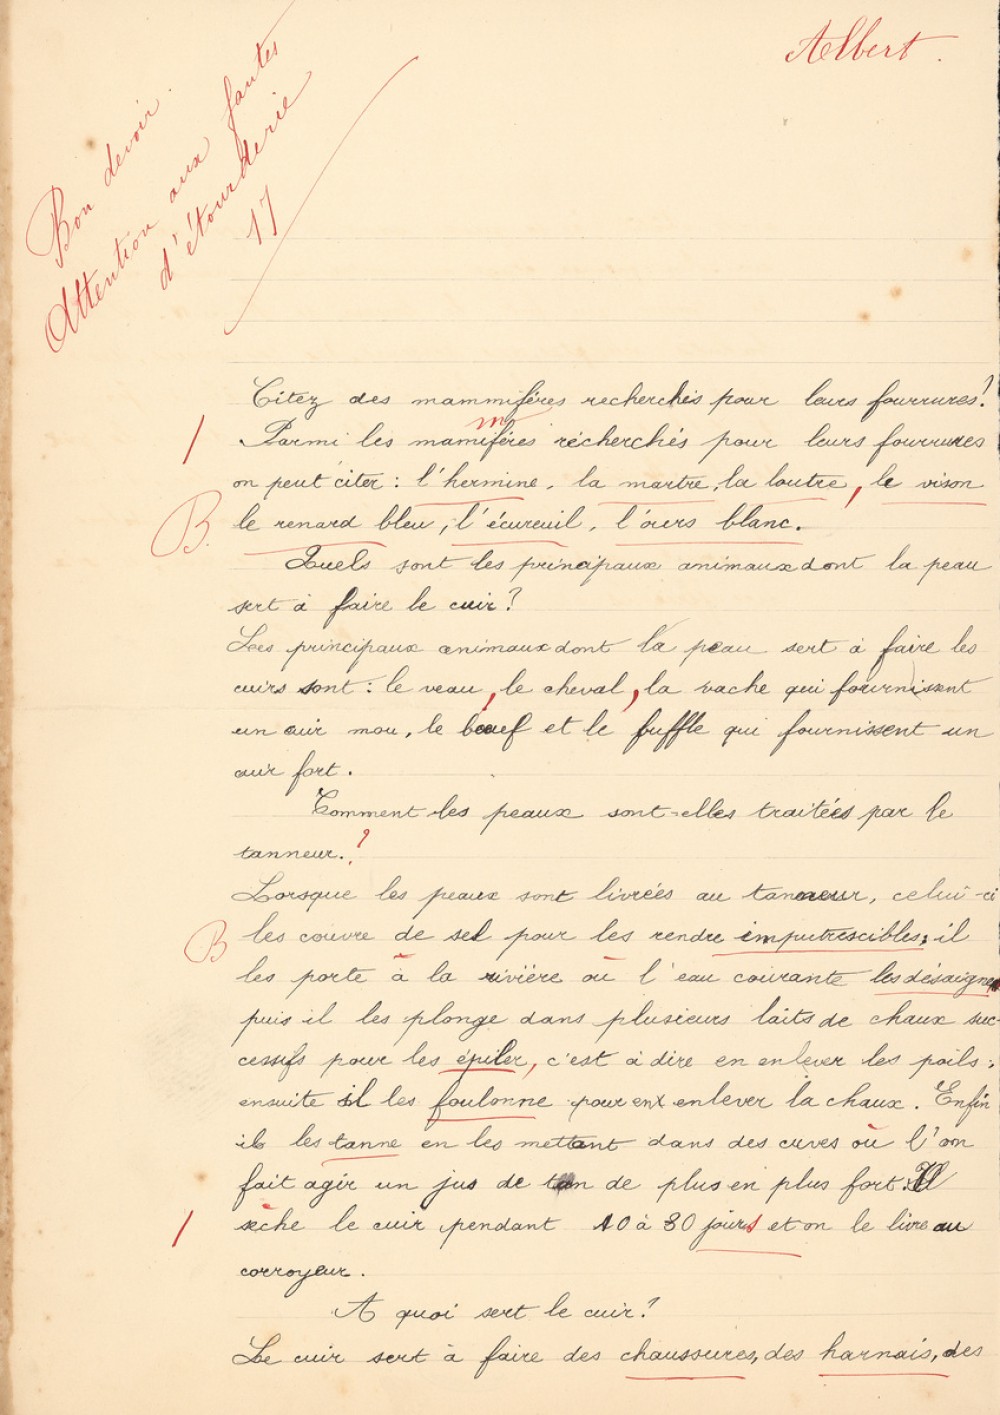 Albert.
Bon devoir.
Attention aux fautes
d'étourderie
17
Citez des mammifères recherchés pour leurs fourrures?
Parmi les mamifères recherchés pour leurs fourrures
m
on peut citer : l'hermine, la martre, la loutre, le vison
B. le renard bleu, l'écureuil, l'ours blanc.
Quels sont les principaux animaux dont la peau
sert à faire le cuir?
Les principaux animaux dont la peau sert à faire les
cuirs sont : le veau, le cheval, la vache qui fournissent
un cuir mou, le bœuf et le buffle qui fournissent un
cuir fort.
Comment les peaux sont-elles traitées par le
tanneur.?
Lorsque les peaux sont livrées au tanneur, celui-ci
B les couvre de sel pour les rendre imputrescibles; il
les porte à la rivière où l'eau courante les désaigne
puis il les plonge dans plusieurs laits de chaux suc-
cessifs pour les épiler, c'est à dire en enlever les poils;
ensuite il les foulonne pour en enlever la chaux. Enfin
il les tanne en les mettant dans des cuves où l'on
fait agir un jus de tan de plus en plus fort. Il
sèche le cuir pendant 10 à 30 jours et on le livre au
corroyeur.
A quoi sert le cuir?
Le cuir sert à faire des chaussures, des harnais, des